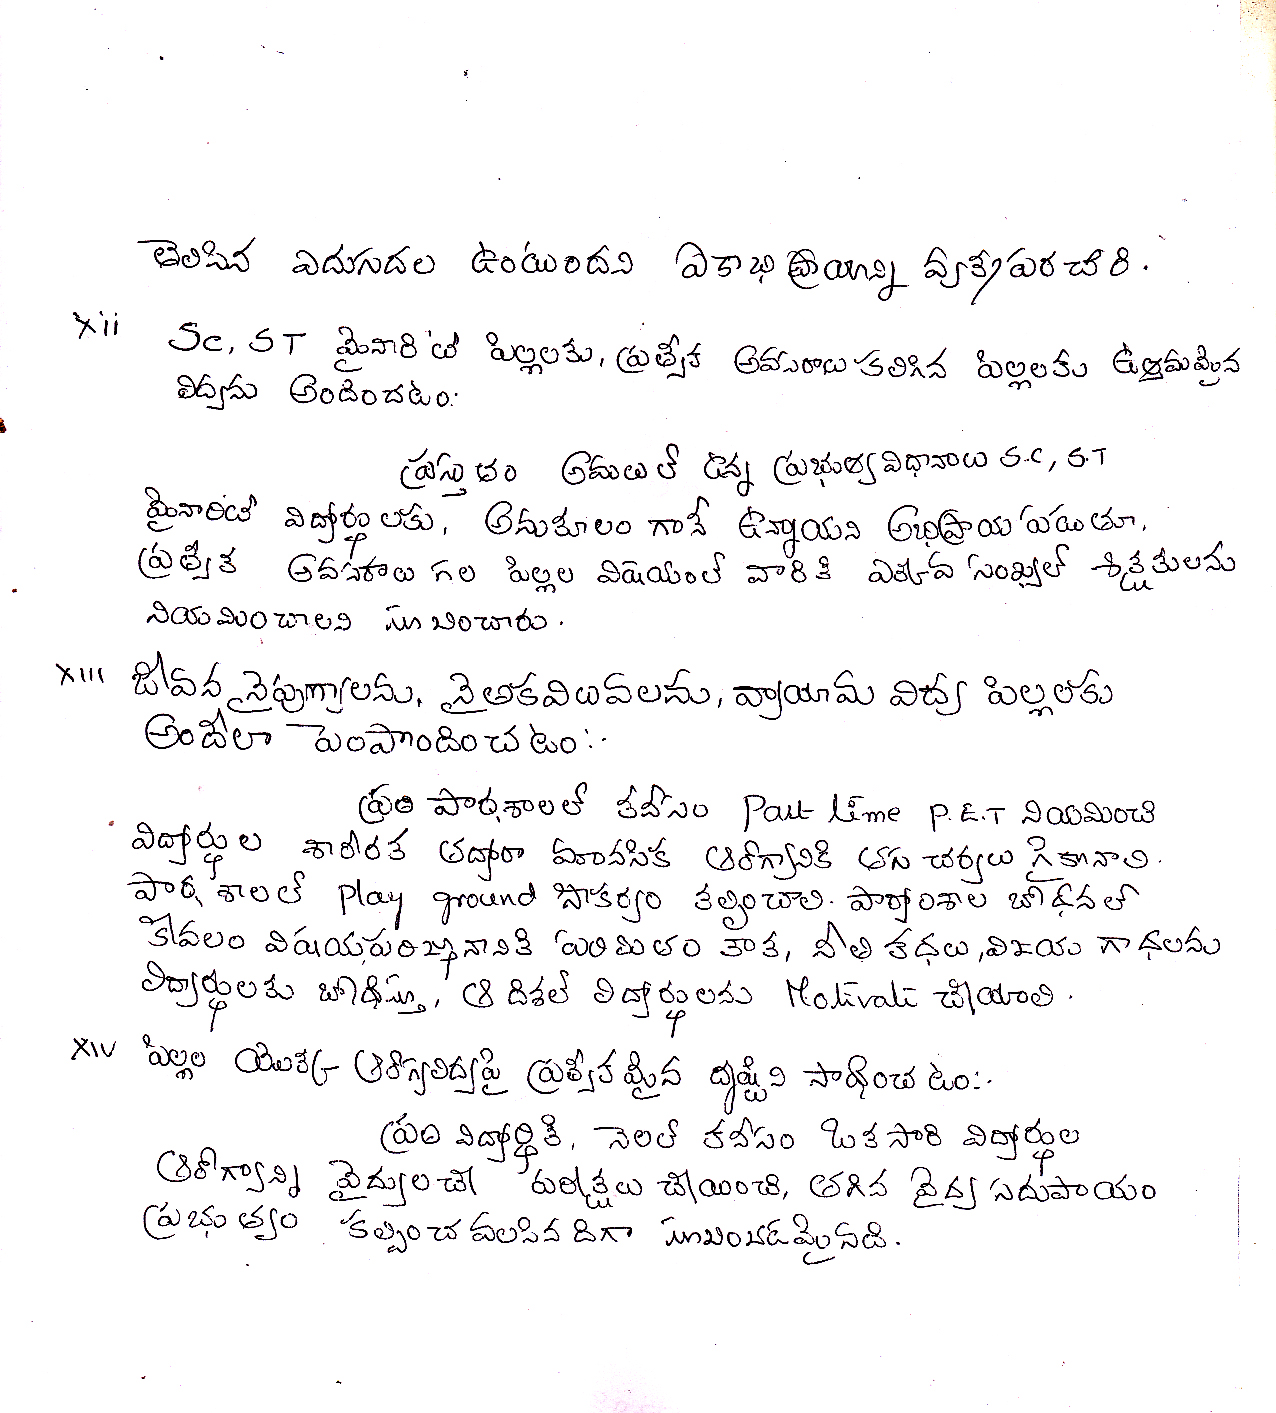 తెలిపిన వెదుసుదల ఉంటుందని ఏకాభిప్రాయాన్ని వ్యక్తపరచిరి.
xii SC, ST మైనారిటీ పిల్లలకు, ప్రత్యేక అవసరాలు కలిగిన పిల్లలకు ఉత్తమమైన
విద్యను అందించటం:
ప్రస్తుతం అమలులో ఉన్న ప్రభుత్వ విధానాలు S.C, S.T
మైనారిటీ విద్యార్థులకు, అనుకూలం గానే ఉన్నాయని అభిప్రాయ పడుతూ,
ప్రత్యేక అవసరాలు గల పిల్లల విషయంలో వారికి ఎక్కువ సంఖ్యలో శిక్షకులను
నియమించాలని సూచించారు.
xiii జీవన నైపుణ్యాలను, నైతికవిలువలను, వ్యాయామ విద్య పిల్లలకు
అందేలా పెంపొందించటం:-
ప్రతి పాఠశాలలో కనీసం Part time P.E.T నియమించి
విద్యార్థుల శారీరక తద్వారా మానసిక ఆరోగ్యానికి తగు చర్యలు గైకొనాలి.
పాఠశాలలో Play ground సౌకర్యం కల్పించాలి. పాఠ్యాంశాల బోధనలో
కేవలం విషయపరిజ్ఞానానికి పరిమితం కాక, నీతి కథలు, విజయ గాధలను
విద్యార్థులకు బోధిస్తూ, ఆ దిశలో విద్యార్థులను Motivate చేయాలి.
xiv పిల్లల యొక్క ఆరోగ్యవిద్యపై ప్రత్యేకమైన దృష్టిని సాధించటం:-
ప్రతి విద్యార్థికి, నెలలో కనీసం ఒకసారి విద్యార్థుల
ఆరోగ్యాన్ని వైద్యులచే పరీక్షలు చేయించి, తగిన వైద్య సదుపాయం
ప్రభుత్వం కల్పించవలసినదిగా సూచించడమైనది.